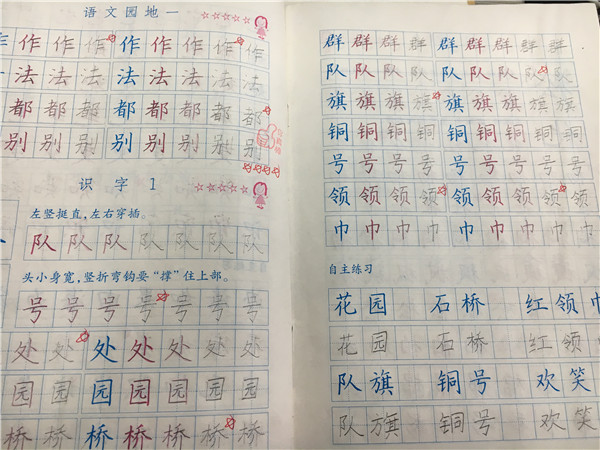 语文园地一
作作作作作作作作
法法法法法法法法
都都都都都都都都
别别别别别别别别
识字1
左竖挺直，左右穿插。
队队队队队队队
头小身宽，竖折弯钩要“撑”住上部。
号号号号号号号
处处处处处处处
园园园园园园园
桥桥桥桥桥桥桥
群群群群群群群群
队队队队队队队队
旗旗旗旗旗旗旗旗
铜铜铜铜铜铜铜铜
号号号号号号号号
领领领领领领领领
巾巾巾巾巾巾巾巾
自主练习
花园 石桥 红领巾
花园 石桥 红领
队旗 铜号 欢笑
队旗 铜号 欢笑